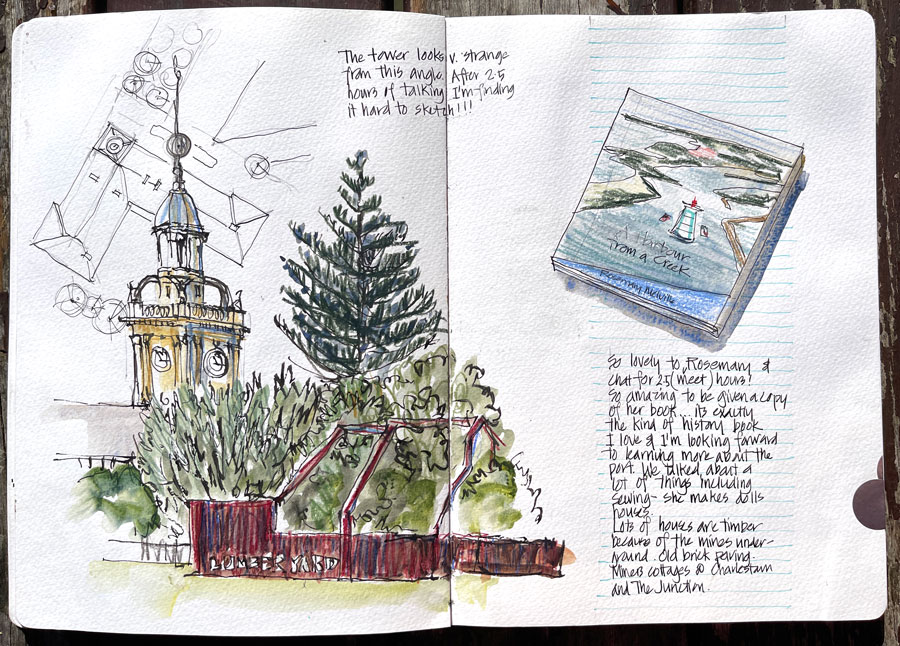 The tower looks v. strange
from this angle. After 2.5
hours of talking I'm finding
it hard to sketch!!!
A Harbour
from a Creek
Rosemary Melville
LUMBER YARD
So lovely to Rosemary &
chat for 2.5 (meet) hours!
So amazing to be given a copy
of her book... its exactly
the kind of history book
I love & I'm looking forward
to learning more about the
port. We talked about a
lot of things including
sewing - she makes dolls
houses.
Lots of houses are timber
because of the mines under-
ground. Old brick paving.
Miners cottages @ Charlestown
and The Junction.